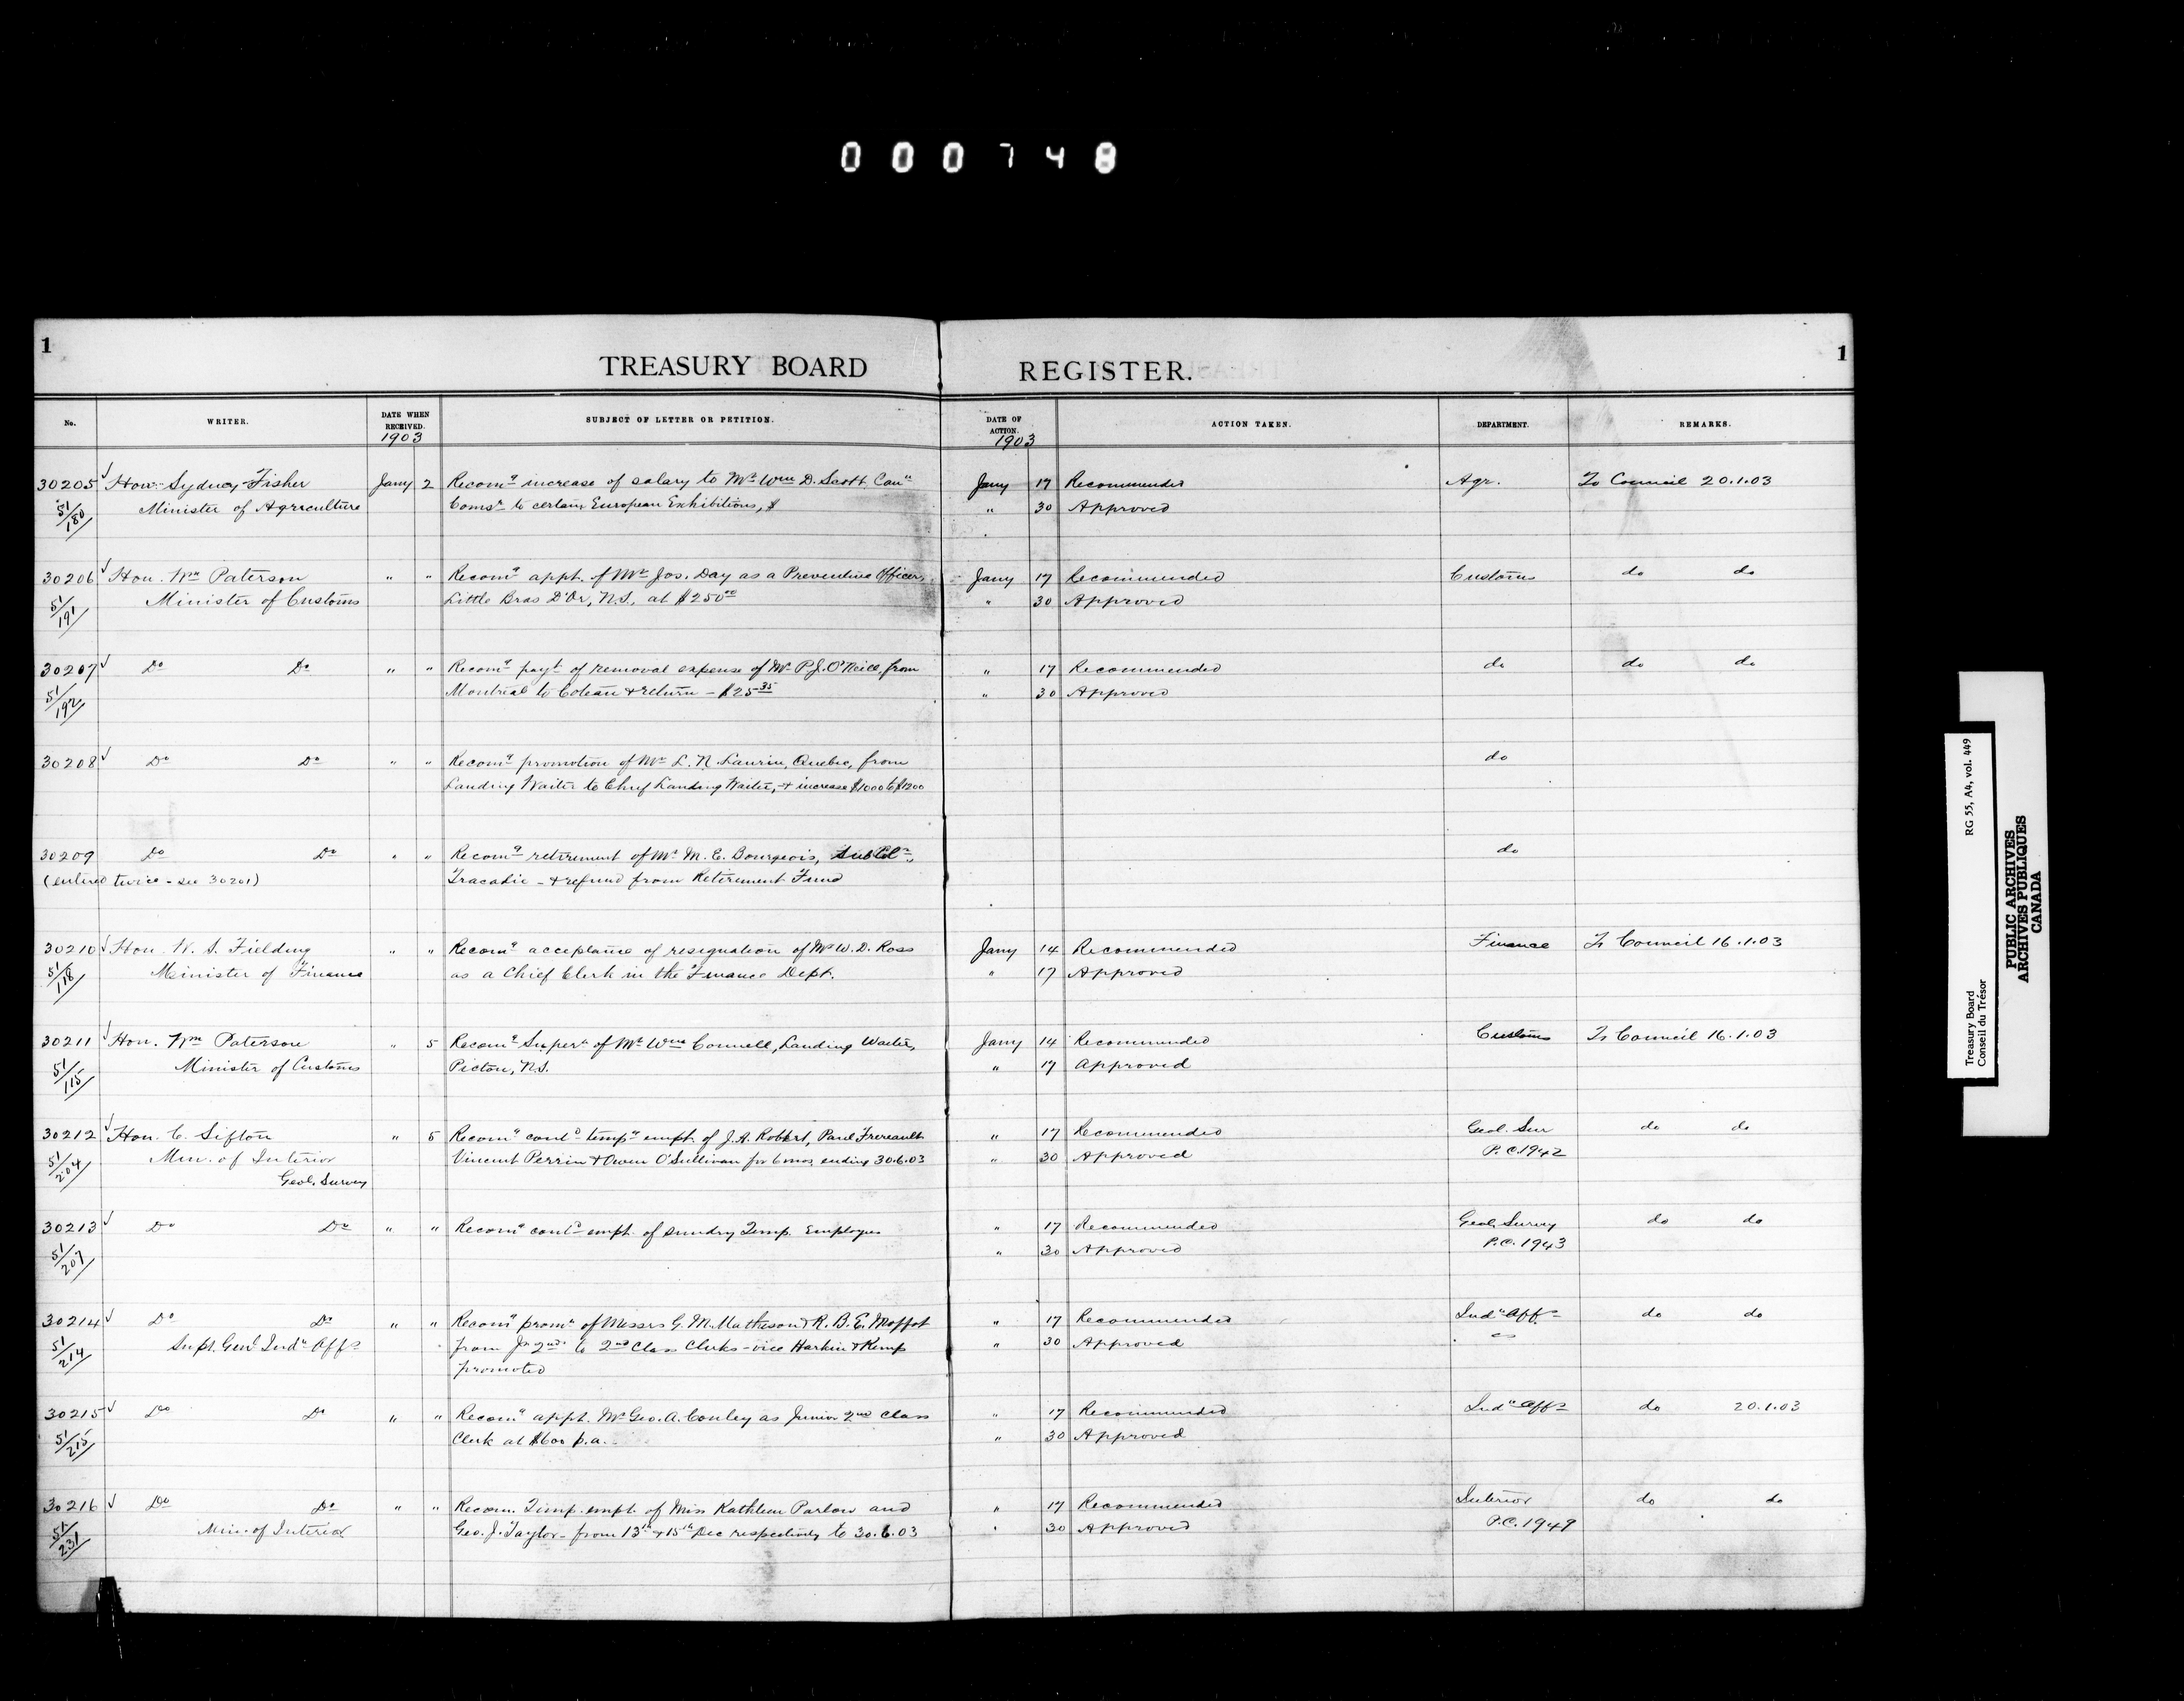 000748
1
TREASURY BOARD REGISTER.
1
No. WRITER. DATE WHEN RECEIVED. 1903 SUBJECT OF LETTER OR PETITION. DATE OF ACTION. 1903 ACTION TAKEN. DEPARTMENT. REMARKS.
30205 ✓ Hon. Sydney Fisher Jany 2 Recomg increase of salary to Mr Wm D. Scott Can. Jany 17 Recommended Agr. To Council 20.1.03
51/180 Minister of Agriculture Comsr to certain European Exhibitions, $ " 30 Approved
30206 ✓ Hon. Wm Paterson " " Recomg appt. of Mr Jos. Day as a Preventive Officer, Jany 17 Recommended Customs do do
51/191 Minister of Customs Little Bras D'Or, N.S., at $250.00 " 30 Approved
30207 ✓ Do Do " " Recomg payt of removal expense of Mr P.J. O'Neill from " 17 Recommended do do do
51/192 Montreal to Coteau & return - $25.35 " 30 Approved
30208 ✓ Do Do " " Recomg promotion of Mr L. N. Laurin, Quebec, from do
Landing Waiter to Chief Landing Waiter, & increase $1000 to $1200
30209 Do Do " " Recomg retirement of Mr M. E. Bourgeois, Sub Colr, do
(entered twice - see 30201) Tracadie - & refund from Retirement Fund
30210 ✓ Hon. W. S. Fielding " " Recomg acceptance of resignation of Mr W. D. Ross Jany 14 Recommended Finance To Council 16.1.03
51/118 Minister of Finance as a Chief Clerk in the Finance Dept. " 17 Approved
30211 ✓ Hon. Wm Paterson " 5 Recomg Supern of Mr Wm Connell, Landing Waiter, Jany 14 Recommended Customs To Council 16.1.03
51/115 Minister of Customs Pictou, N.S. " 17 Approved
30212 ✓ Hon. C. Sifton " 5 Recomg contd tempy empt. of J. A. Robert, Paul Frereault " 17 Recommended Geol. Sur do do
51/204 Min. of Interior Vincent Perrin & Owen O'Sullivan for 6 mos ending 30.6.03 " 30 Approved P.C. 1942
Geol. Survey
30213 ✓ Do Do " " Recomg contd empt. of sundry Temp. Employes " 17 Recommended Geol. Survey do do
51/207 " 30 Approved P.C. 1943
30214 ✓ Do Do " " Recomg promn of Messrs G. M. Matheson & R. B. E. Moffat " 17 Recommended Indn Affs do do
51/214 Supt. Genl Indn Affs from Jr 2nd to 2nd Class Clerks - vice Harkin & Kemp " 30 Approved
promoted
30215 ✓ Do Do " " Recomg appt. Mr Geo. A. Conley as Junior 2nd Class " 17 Recommended Indn Affs do 20.1.03
51/215 Clerk at $600 p.a. " 30 Approved
30216 ✓ Do Do " " Recom. Temp. empt. of Miss Kathleen Parlow and " 17 Recommended Interior do do
51/231 Min. of Interior Geo. J. Taylor - from 13th & 15th Dec respectively to 30.6.03 " 30 Approved P.C. 1949
RG 55, A4, vol. 449
Treasury Board
Conseil du Trésor
PUBLIC ARCHIVES
ARCHIVES PUBLIQUES
CANADA